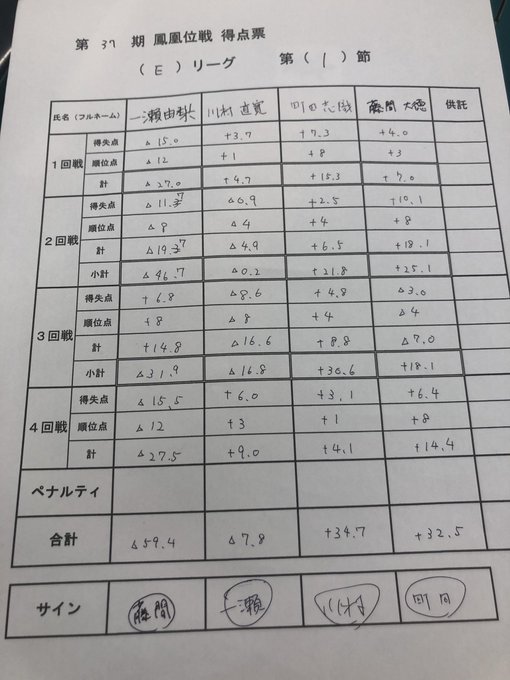 第 37 期 鳳凰位戦 得点票
( E ) リーグ 第 ( 1 ) 節
氏名（フルネーム） 一瀬由梨 川村 直寛 町田 藤間 大徳 供託
1回戦 得失点 △15.0 +3.7 +7.3 +4.0
順位点 △12 +1 +8 +3
計 △27.0 +4.7 +15.3 +7.0
2回戦 得失点 △11.7 △0.9 +2.5 +10.1
順位点 △8 △4 +4 +8
計 △19.7 △4.9 +6.5 +18.1
小計 △46.7 △0.2 +21.8 +25.1
3回戦 得失点 +6.8 △8.6 +4.8 △3.0
順位点 +8 △8 +4 △4
計 +14.8 △16.6 +8.8 △7.0
小計 △31.9 △16.8 +30.6 +18.1
4回戦 得失点 △15.5 +6.0 +3.1 +6.4
順位点 △12 +3 +1 +8
計 △27.5 +9.0 +4.1 +14.4
ペナルティ
合計 △59.4 △7.8 +34.7 +32.5
サイン 藤間 一瀬 川村 町田